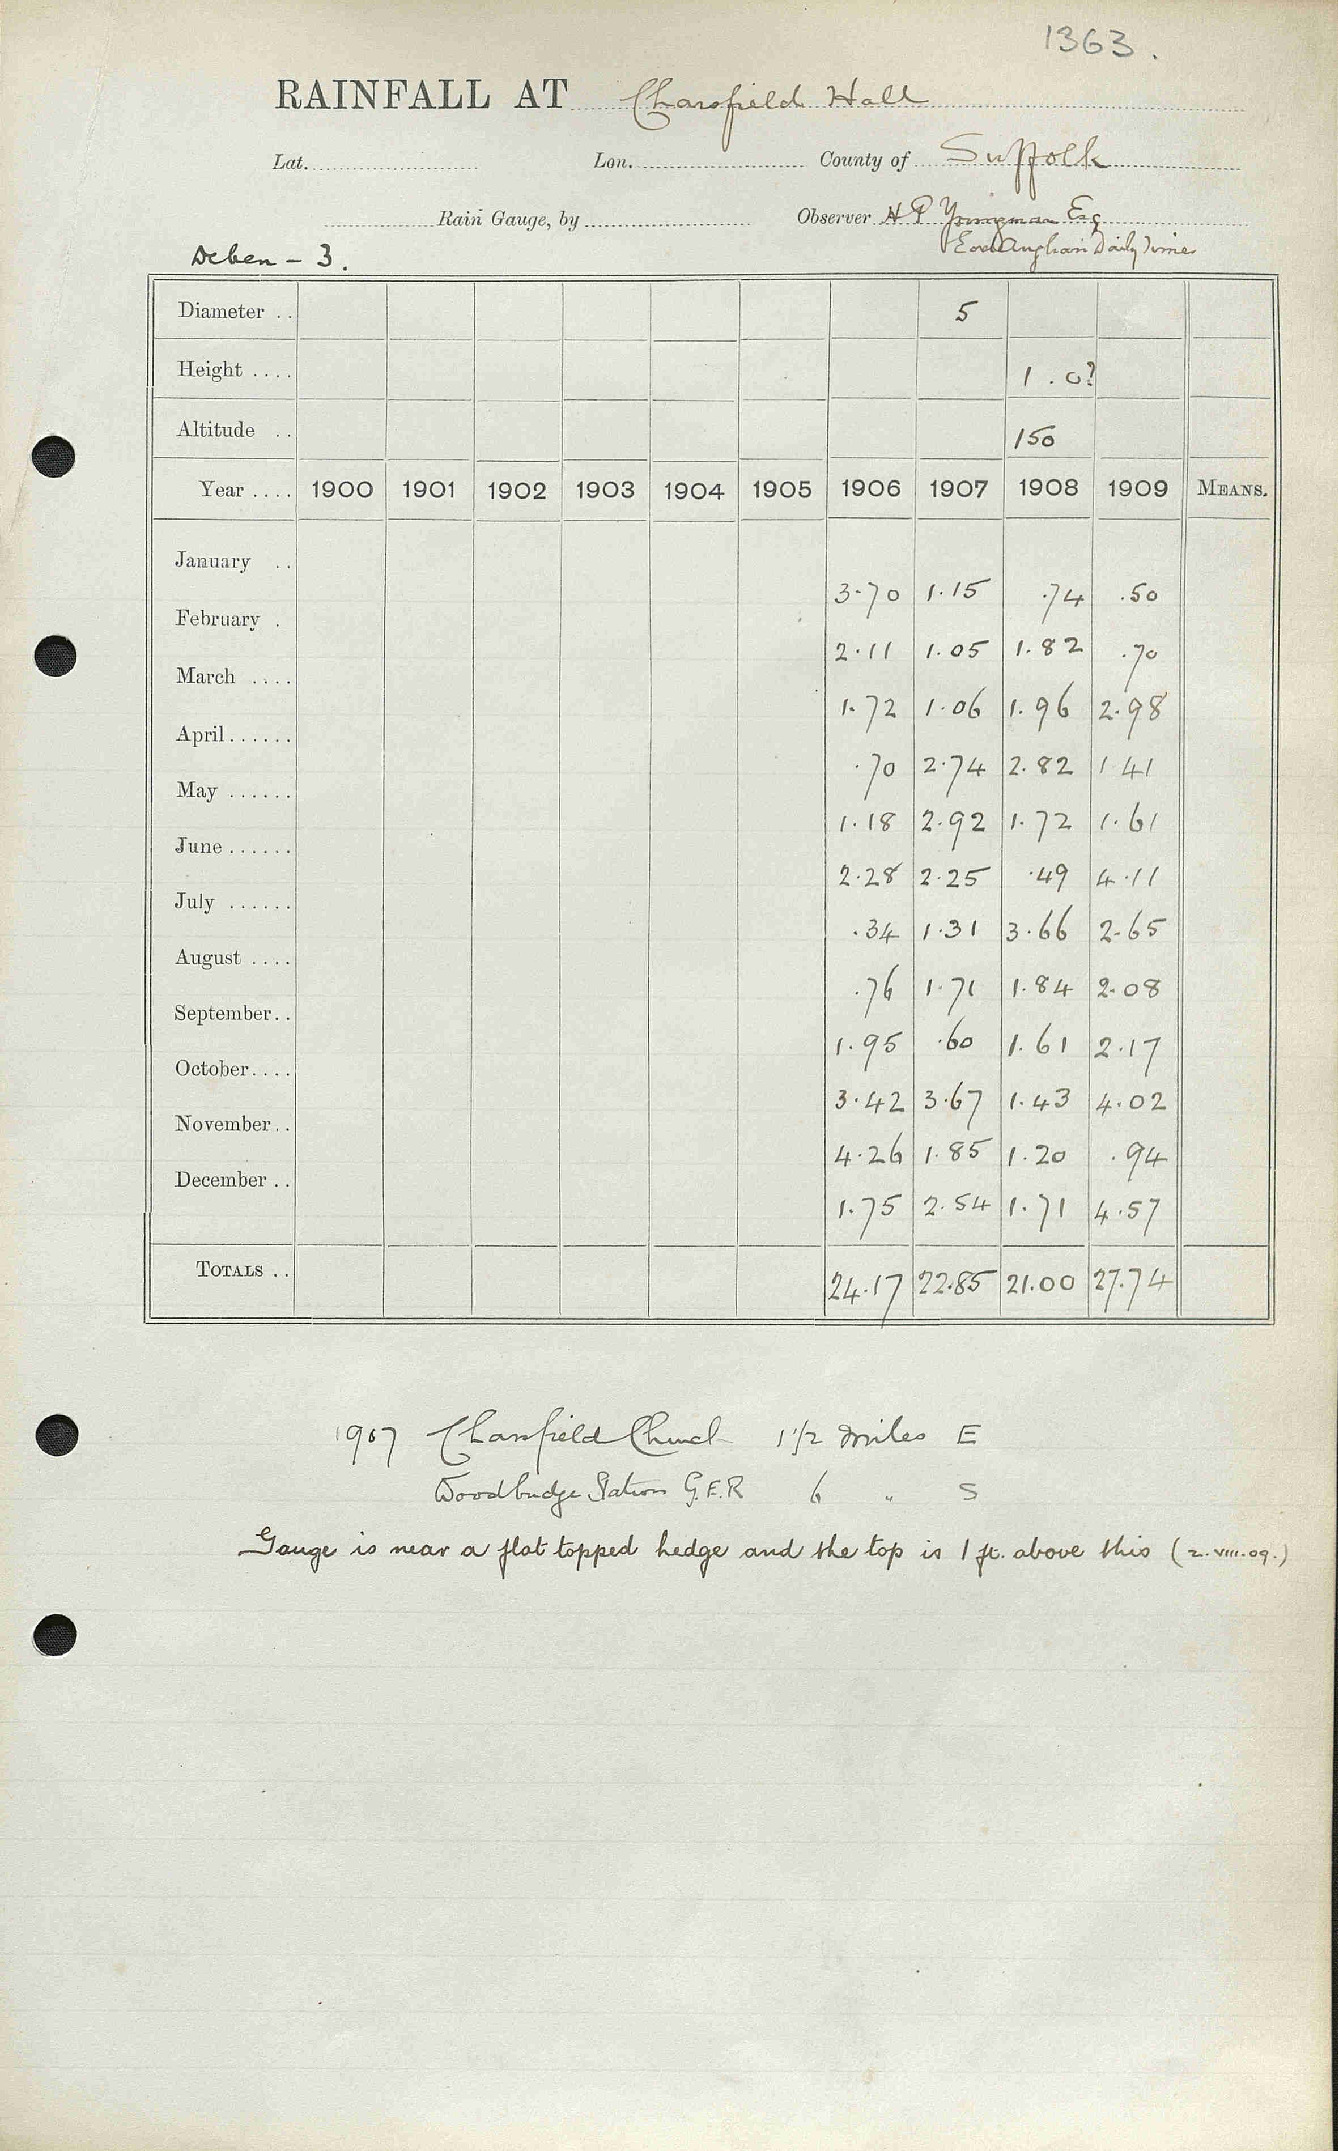 1363.
RAINFALL AT Charsfield Hall
Lat. Lon. County of Suffolk
Rain Gauge, by Observer H P Youngman Esq
East Anglian Daily Times
Deben - 3.
Diameter .. 5
Height .... 1.0?
Altitude .. 150
Year .... 1900 1901 1902 1903 1904 1905 1906 1907 1908 1909 MEANS.
January .. 3.70 1.15 .74 .50
February . 2.11 1.05 1.82 .70
March .... 1.72 1.06 1.96 2.98
April...... .70 2.74 2.82 1.41
May ...... 1.18 2.92 1.72 1.61
June ...... 2.28 2.25 .49 4.11
July ...... .34 1.31 3.66 2.65
August .... .76 1.71 1.84 2.08
September.. 1.95 .60 1.61 2.17
October.... 3.42 3.67 1.43 4.02
November.. 4.26 1.85 1.20 .94
December .. 1.75 2.54 1.71 4.57
TOTALS .. 24.17 22.85 21.00 27.74
1907 Charsfield Church 1 1/2 miles E
Woodbridge Station G.E.R 6 " S
Gauge is near a flat topped hedge and the top is 1 ft. above this (2.VIII.09.)